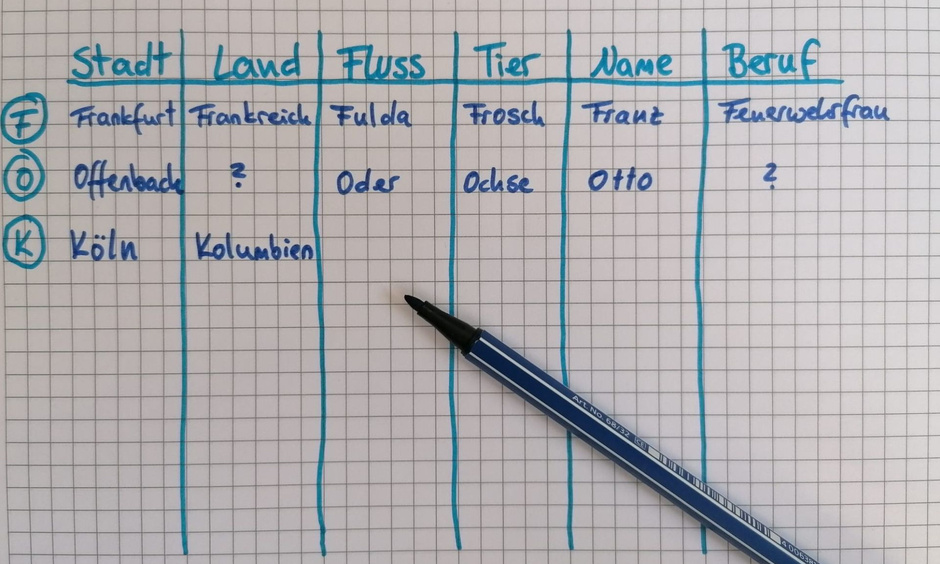 Stadt Land Fluss Tier Name Beruf
F Frankfurt Frankreich Fulda Frosch Franz Feuerwehrfrau
O Offenbach ? Oder Ochse Otto ?
K Köln Kolumbien
Art. No. 68/32